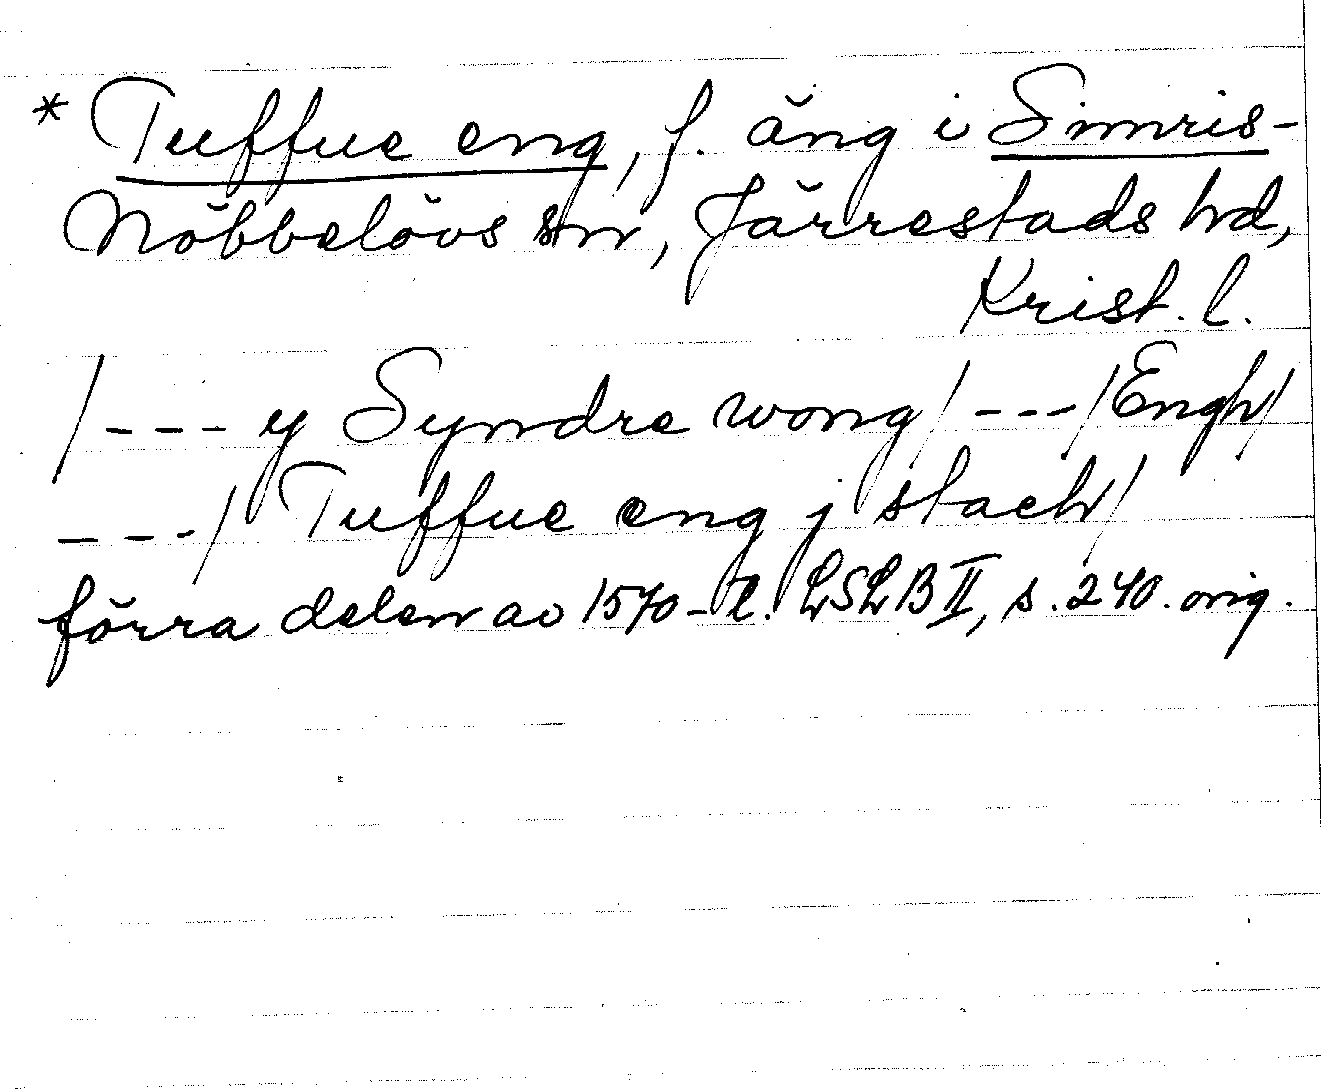 * Tuffue eng, f. äng i Simris-
Nöbbelövs sn, Järrestads hd,
Krist. l.
/--- y Syndre wong/ ---/Engh/
---/ Tuffue eng j stach/
förra delen av 1570-t. LSLB II, s. 240. orig.